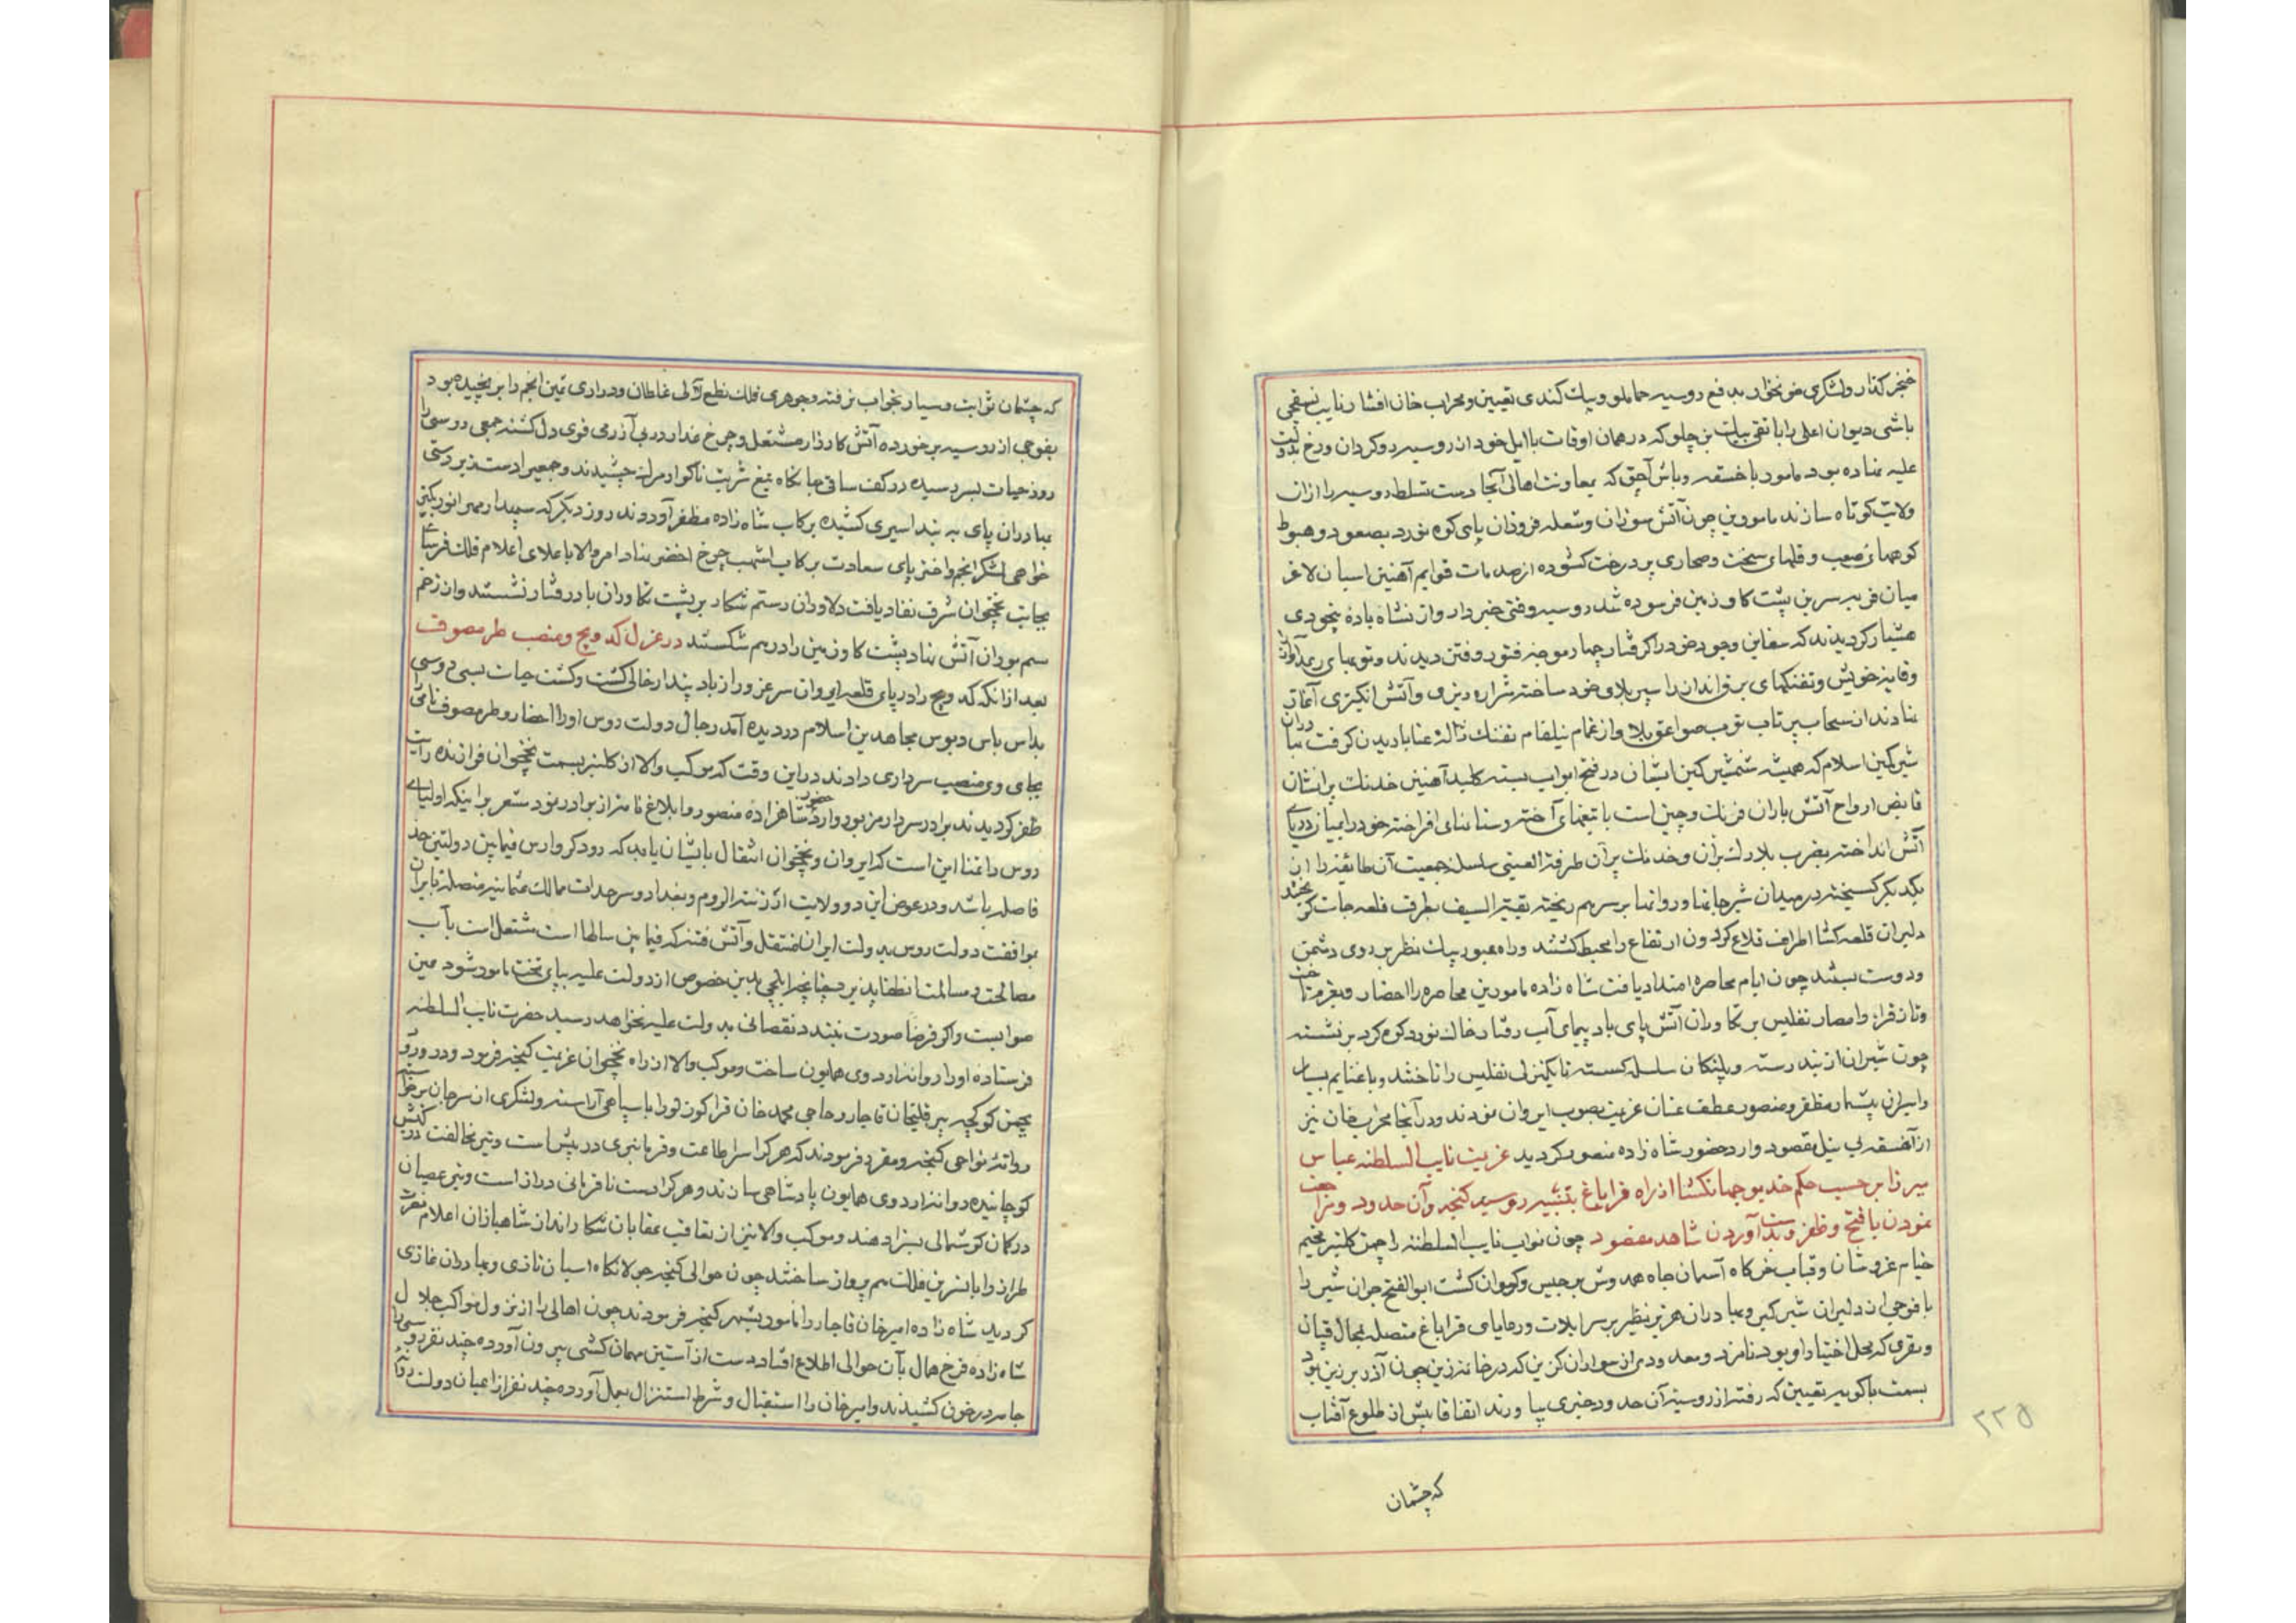 خنجر گذار ولشکری خونخوار بدفع روسیه حماملو و پیک کندی تعیین ومحراب خان افشار نایب نسقچی
باشی دیوان اعلی را با تقی بیک بن چلو که در همان اوقات با ایل خود از روسیه روکردان ورخ بدولت
علیه نهاده بود مامور با خسقه وباش آچق که بمعاونت اهالی آنجا دست تسلط روسیه را ازان
ولایت کوتاه سازند مامورین چون آتش سوزان وشعله فروزان پای کوه نورد بصعود وهبوط
کوههای صعب و قلهای سخت وصحاری پر درخت کشوده از صدمات قوایم آهنین اسبان لاغر
میان فربه سرین پشت کاو زمین فرسوده شد روسیه وقتی خبردار واز نشاه باده بیخودی
هشیار کردیدند که سفاین وجود خود را کرفتار چهار موجه فتور وفتن دیدند وتوبهای رعد آوازرا
وقایه خویش وتفنکهای برق اندازرا سپر بلای خود ساخته شراره ریزی وآتش انکیزی آغاز
نهادند از سحاب پرتاب توپ صواعق بلا واز غمام نیلفام تفنک ژاله عنا باریدن کرفت بهادران
شیر کین اسلام که همیشه شمشیر کین ایشان در فتح ابواب بسته کلید آهنین خدنک برانشان
قابض ارواح آتش باران فرنک وچین است با تیغهای آخته وسنانهای افراخته خود را بمیان دریای
آتش انداخته بضرب بلارک بران وخدنک پران طرفة العینی سلسله جمعیت آن طایفه را از
یکدیکر کسیخته در میدان شیر جانها وروانها بر سرهم ریخته بقیة السیف بطرف قلعه جات کریختند
دلیران قلعه کشا اطراف قلاع کردون ارتفاع را محیط کشتند وراه عبور پیک نظر بر روی دشمن
ودوست بستند چون ایام محاصره امتداد یافت شاه زاده مامورین محاصره را احضار وبعزم تاخت
وتاز قرا وامصار تفلیس بر تکاوران آتش پای باد پیمای آب رفتار خاک نورد کوه کرد برنشسته
چون شیران از بند رسته وپلنکان سلسله کسسته تا یکمنزلی تفلیس را تاختند وبا غنایم بسیار
واسیران بیشمار مظفر ومنصور عطف عنان عزیمت بصوب ایروان نمودند ودر آنجا محراب خان نیز
از آخسقه بی نیل مقصود وارد حضور شاه زاده منصور کردید عزیمت نایب السلطنه عباس
میرزا بر حسب حکم خدیو جهانکشا از راه قراباغ بتنبیه روسیه کنجه وآن حدود ومراجعت
نمودن با فتح وظفر وبدست آوردن شاهد مقصود چون نواب نایب السلطنه را چمن کلنبر مخیم
خیام عزوشان وقباب خرکاه آسمان جاه همدوش برجیس وکیوان کشت ابوالفتح جوان شیر را
با فوجی از دلیران شیر کیر وبهادران هژبر نظیر بر سر ایلات ورعایای قراباغ متصله بمحال قپان
ومقری که محل اختیار او بود نامزد ومعدودی از سواران کزین که در خانه زین چون آذر برزین بود
بسمت باکویه تعیین که رفته از روسیه آن حدود خبری بیاورند اتفاقا پیش از طلوع آفتاب
که چشمان
۲۲۵
که چشمان ثوابت وسیار بخواب نرفته وجوهری فلک نطع لآلی غلطان ودراری ثمین انجم را برنچیده بود
بفوجی از روسیه برخورده آتش کارزار مشتعل وچرخ غدار در بی آزرمی قوی دل کشته جمعی روسی را
روز حیات بسر رسیده در کف ساقی جانکاه تیغ شربت ناکوار مرک چشیدند وجمعی را دست زبردستی
بهادران پای به بند اسیری کشیده برکاب شاه زاده مظفر آوردند روز دیکر که سپیدار مهر انور بکین
خواهی لشکر انجم واختر پای سعادت برکاب اشهب چرخ اخضر نهاد امر والا باعلای اعلام فلک فرسا
بجانب نخجوان شرف نفاذ یافت دلاوران رستم شکار بر پشت تکاوران باد رفتار نشستند واز زخم
سم بوران آتش نهاد پشت کاو زمین را درهم شکستند در عزل کدویچ ونصب طرمصوف
بعد از انکه کدویچ را در پای قلعه ایروان سر غرور از باد پندار خالی کشت وکشت حیات بسی روسی را
بداس باس دبوس مجاهدین اسلام درویده آمد رجال دولت روس اورا احضار وطرمصوف نامی را
بجای وی منصب سرداری دادند دراین وقت که موکب والا از کلنبر بسمت نخجوان فرازنده رایت
ظفر کردیدند برادر سردار مزبور وارد حضور شاهزاده منصور وبابلاغ نامه از برادر نمود مشعر برا ینکه اولیای
روس را تمنا این است که ایروان ونخجوان انتقال بایشان یابد که رود کروارس فیمابین دولتین حد
فاصله باشد ودر عوض این دو ولایت ارزنة الروم وبغداد وسرحدات ممالک عثمانیه متصله بایران
بموافقت دولت روس بدولت ایران منتقل وآتش فتنه که فیمابین سالها است مشتعل است بآب
مصالحت ومسالمت انطفا پذیرد چنانچه ایلچی بدین خصوص از دولت علیه بپای تخت مامور شود عین
صوابست واکر فرضا صورت نبندد نقصانی بدولت علیه نخواهد رسید حضرت نایب السلطنه
فرستاده اورا روانه اردوی همایون ساخت وموکب والا از راه نخجوان عزیمت کنجه فرمود ودر ورود
بچمن کوکچه پیر قلیخان قاجار وحاجی محمد خان قراکوزلو را با سپاهی آراسته ولشکری از سرجان برخواسته
روانه نواحی کنجه ومقرر فرمودند که هر کرا سر اطاعت وفرمانبری در پیش است وتیر مخالفت در کیش
کوچانیده روانه اردوی همایون پادشاهی سازند وهر کرا دست نافرمانی دراز است وتیر عصیان
در کمان کوشمالی بسزا دهند وموکب والا نیز از تعاقب عقابان شکار انداز شاهبازان اعلام نصرت
طراز را با نسرین فلک هم پرواز ساختند چون حوالی کنجه جولانکاه اسبان تازی وبهادران غازی
کردید شاه زاده امیر خان قاجار را مامور بشهر کنجه فرمودند چون اهالی را از نزول مواکب جلال
شاه زاده فرخ همال بآن حوالی اطلاع افتاد دست از آستین مهمان کشی بیرون آورده چند نفر روسی را
جامه در خون کشیدند وامیر خان را استقبال وشرط استنزال بعمل آورده چند نفر از اعیان دولت